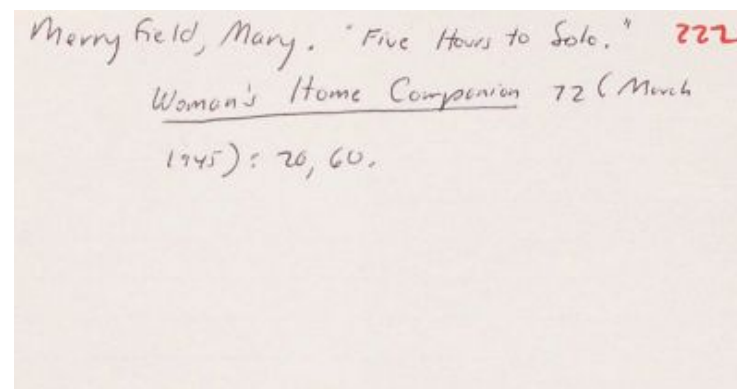 Merryfield, Mary. "Five Hours to Solo." 222
Woman's Home Companion 72 (March
1945): 20, 60.